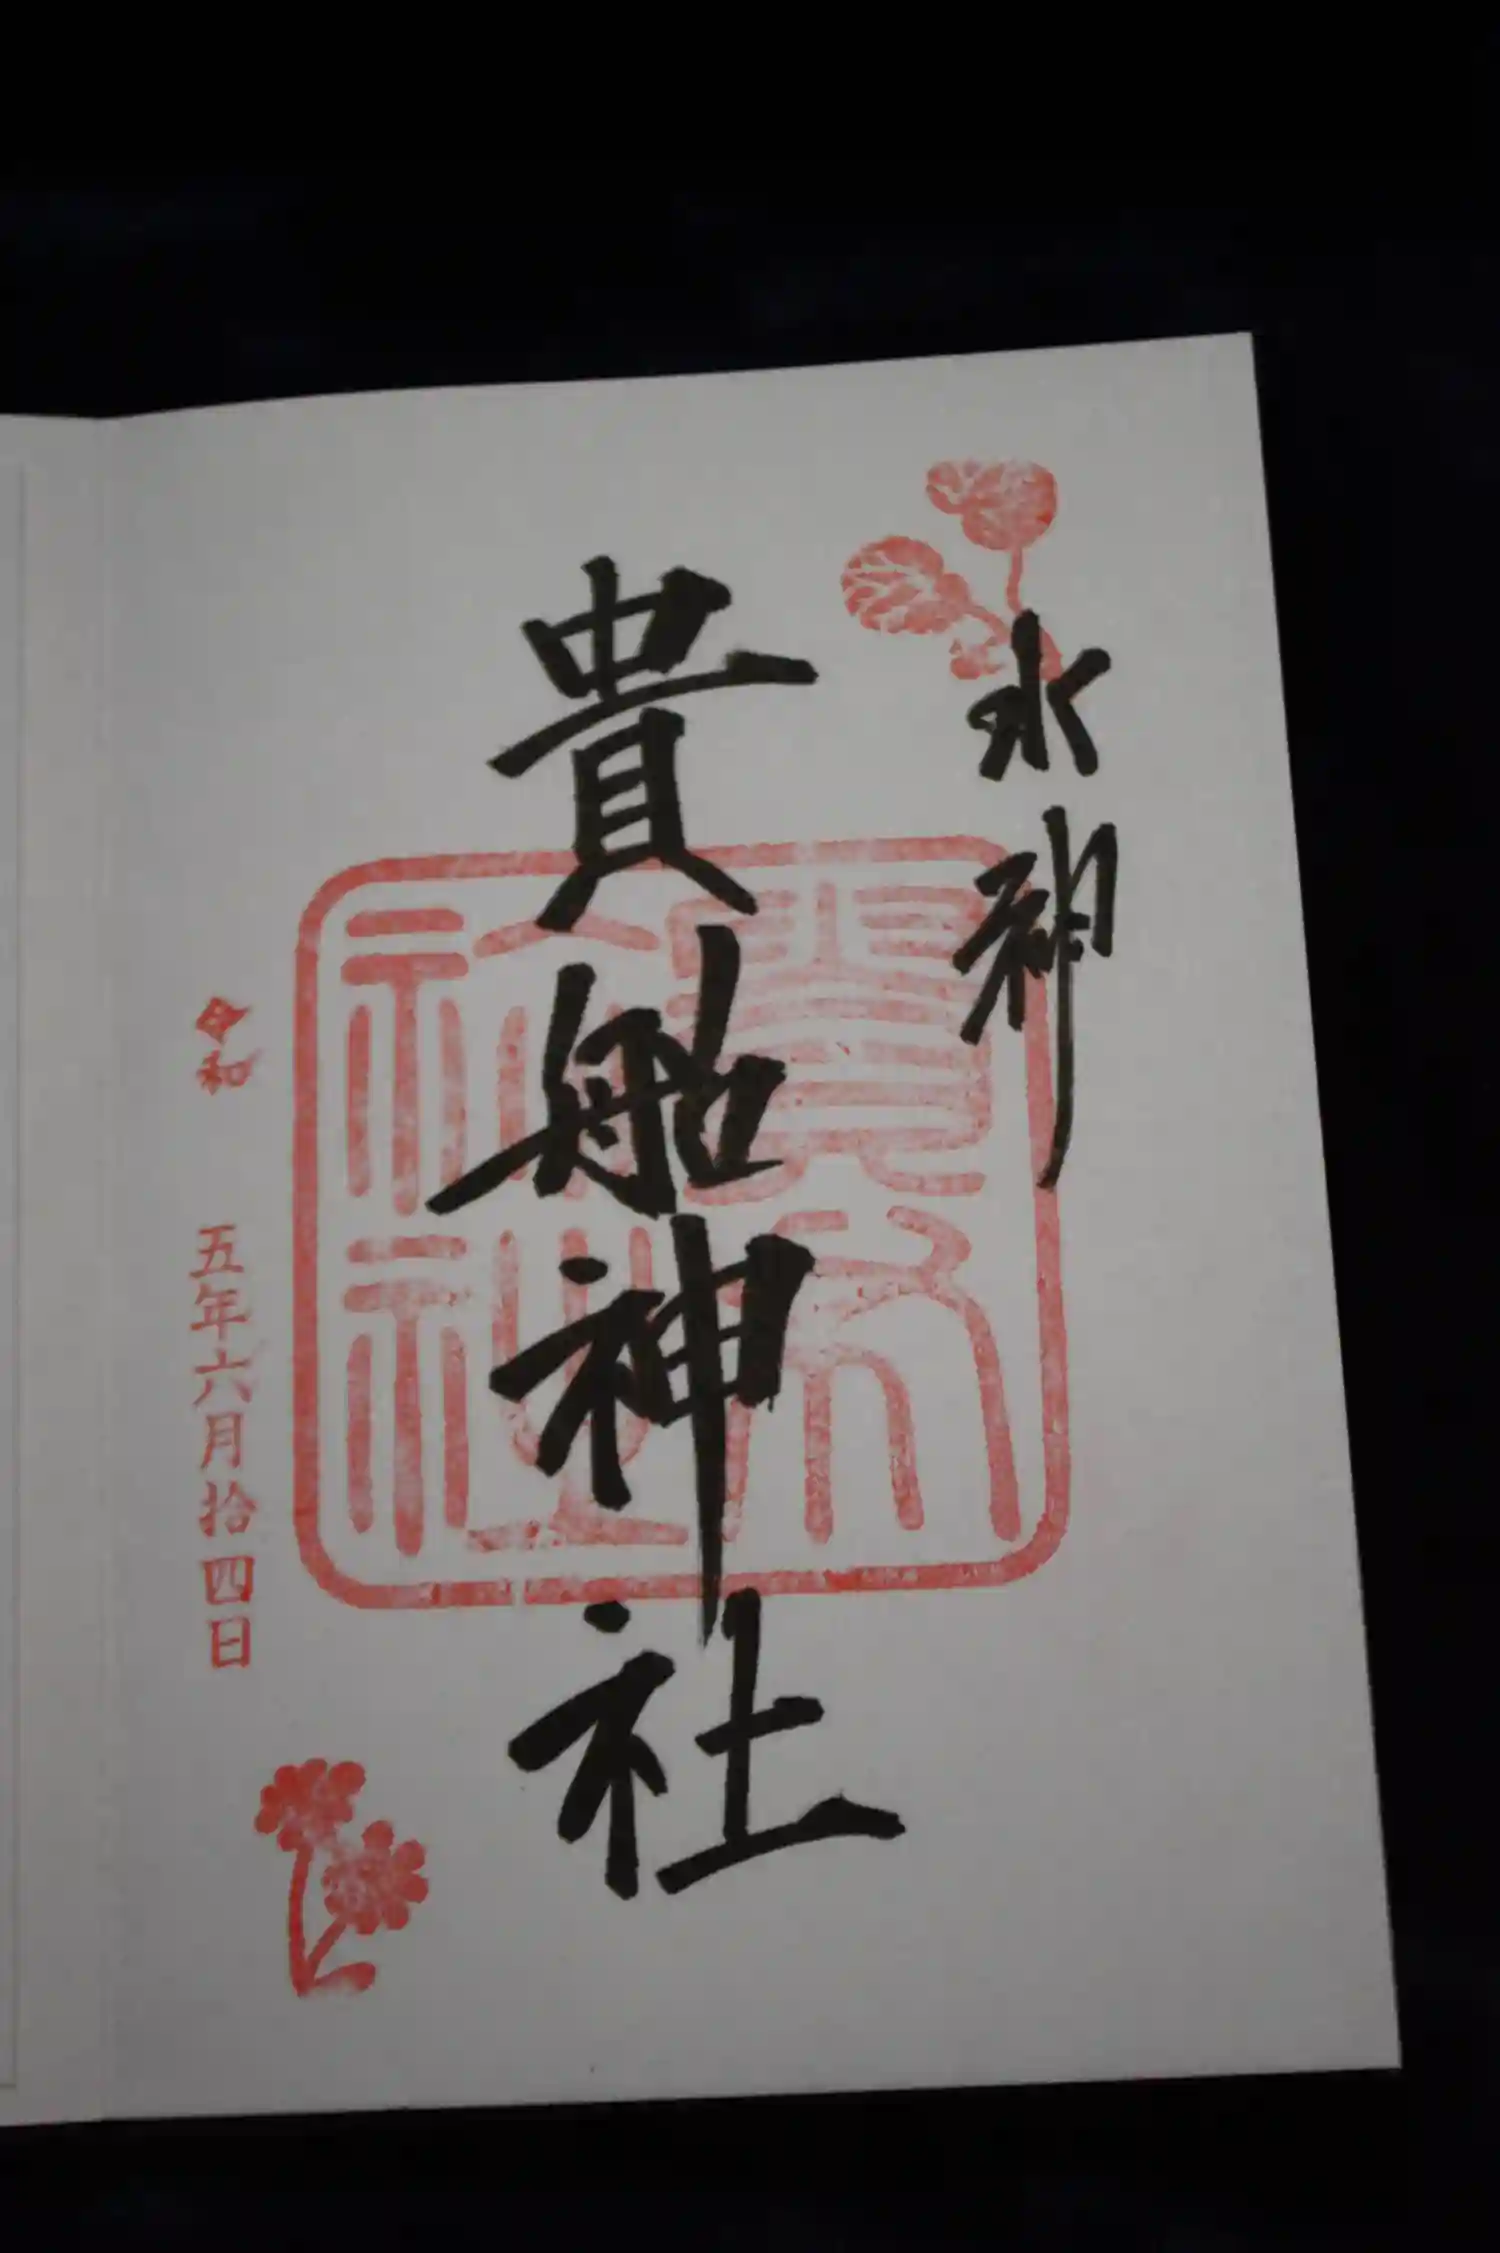 水神
貴船神社
貴布祢社
令和 五年六月拾四日